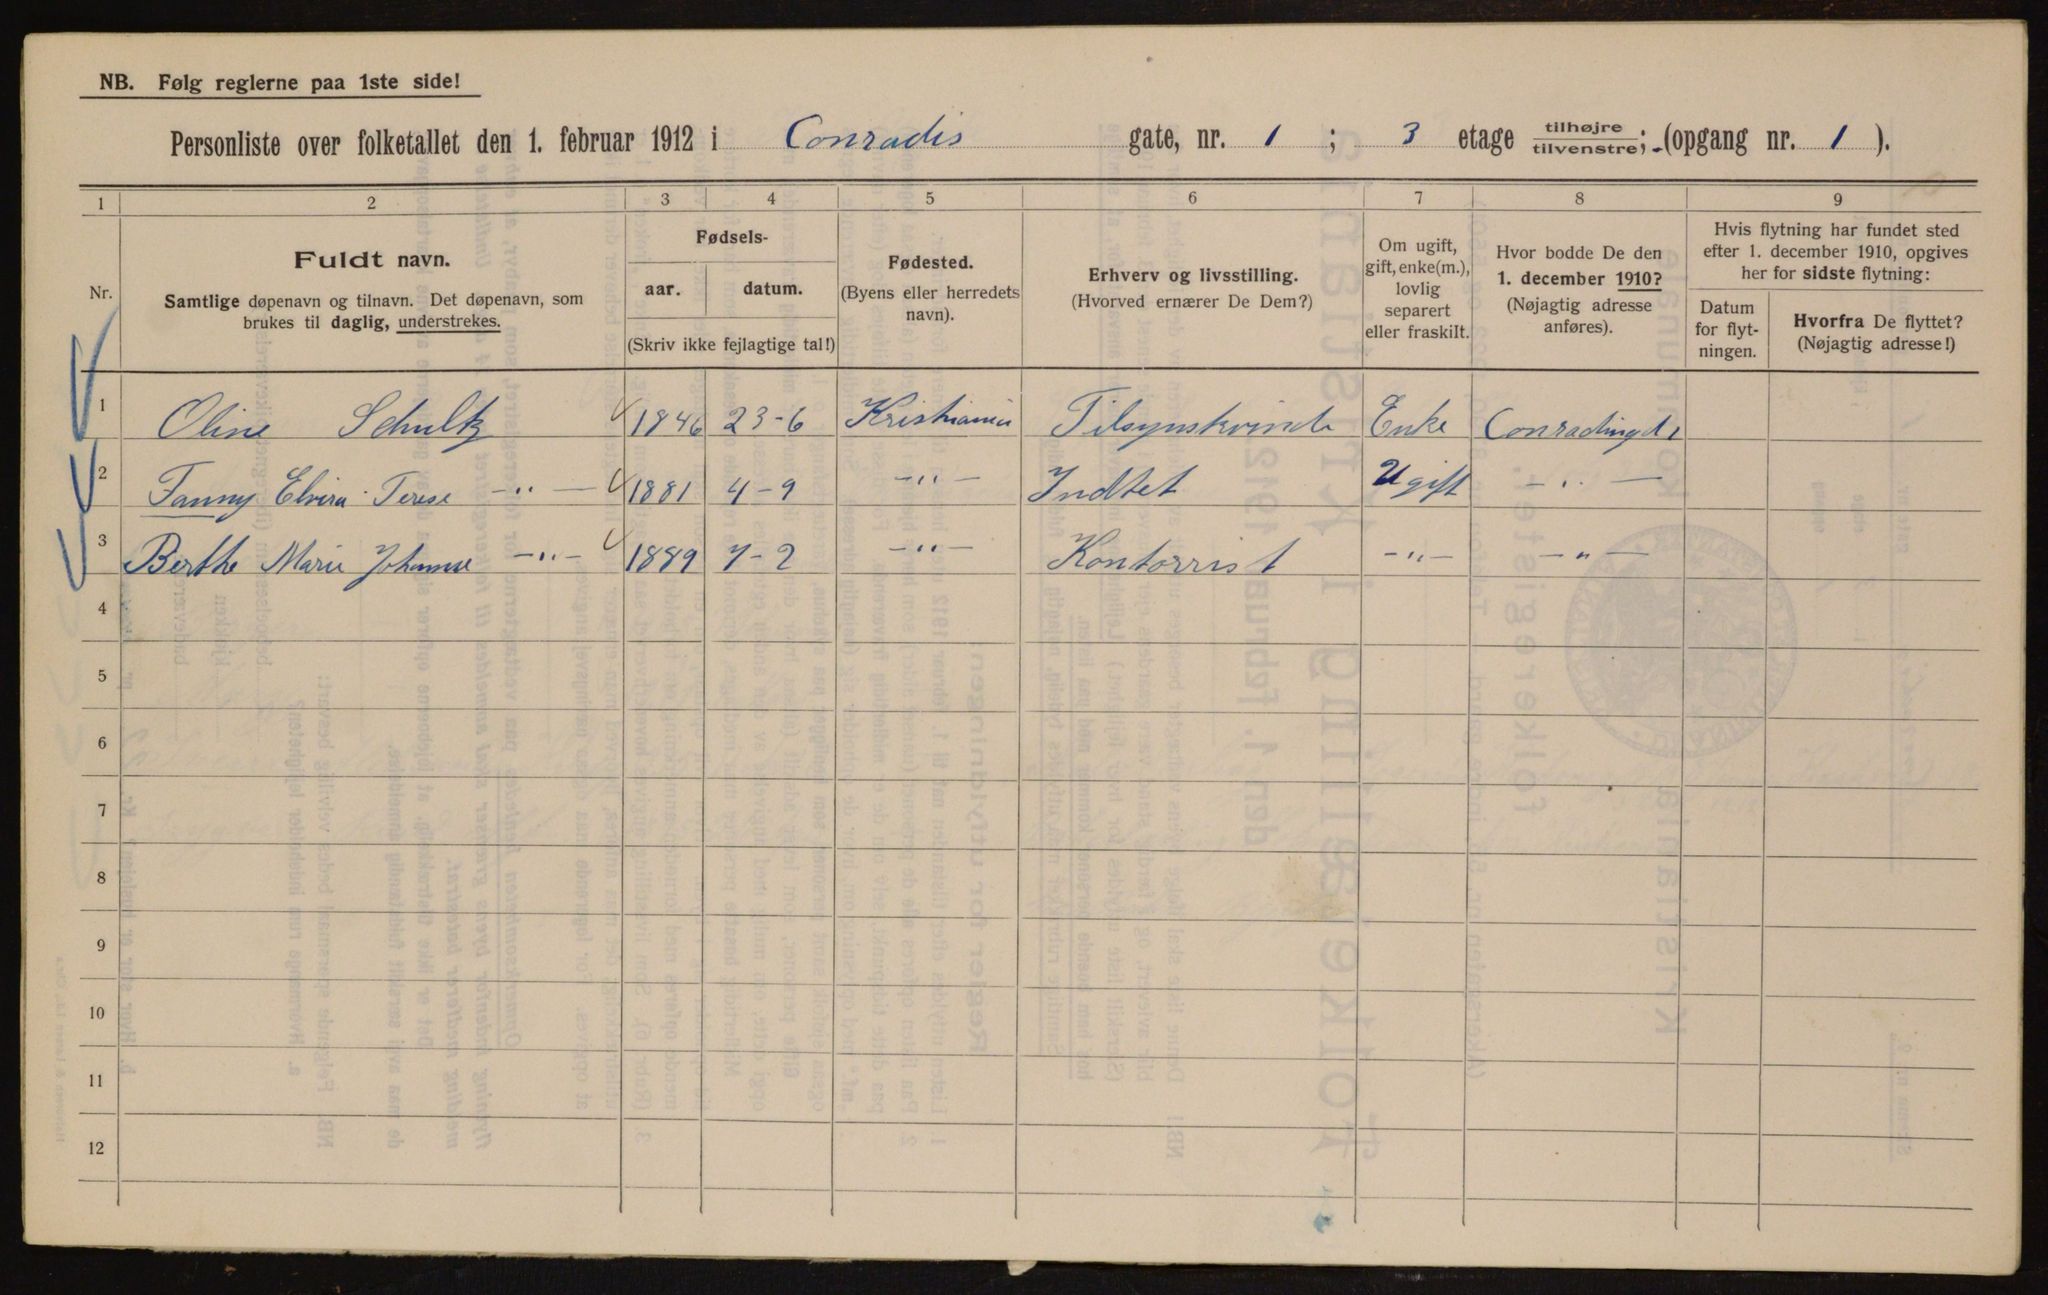 NB. Følg reglerne paa 1ste side!
Personliste over folketallet den 1. februar 1912 i Conradis gate, nr. 1 ; 3 etage tilhøjre tilvenstre; (opgang nr. 1 ).
1 2 3 4 5 6 7 8 9
Nr.
Fuldt navn.
Samtlige døpenavn og tilnavn. Det døpenavn, som
brukes til daglig, understrekes.
Fødsels-
aar. datum.
(Skriv ikke fejlagtige tal!)
Fødested.
(Byens eller herredets
navn).
Erhverv og livsstilling.
(Hvorved ernærer De Dem?)
Om ugift,
gift, enke(m.),
lovlig
separert
eller fraskilt.
Hvor bodde De den
1. december 1910?
(Nøjagtig adresse
anføres).
Hvis flytning har fundet sted
efter 1. december 1910, opgives
her for sidste flytning:
Datum
for flyt-
ningen.
Hvorfra De flyttet?
(Nøjagtig adresse!)
1 Oline Schultz 1846 23-6 Kristiania Tilsynskvinde Enke Conradingd 1
2 Fanny Elvira Terese -"- 1881 4-9 -"- Indtet Ugift -"-
3 Berthe Marie Johanne -"- 1889 7-2 -"- Kontorrist -"- -"-
4
5
6
7
8
9
10
11
12